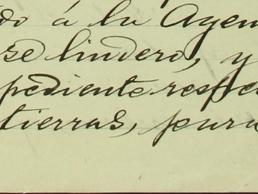 do á la Agen
se lindero, y
pediente respe
tierras, para